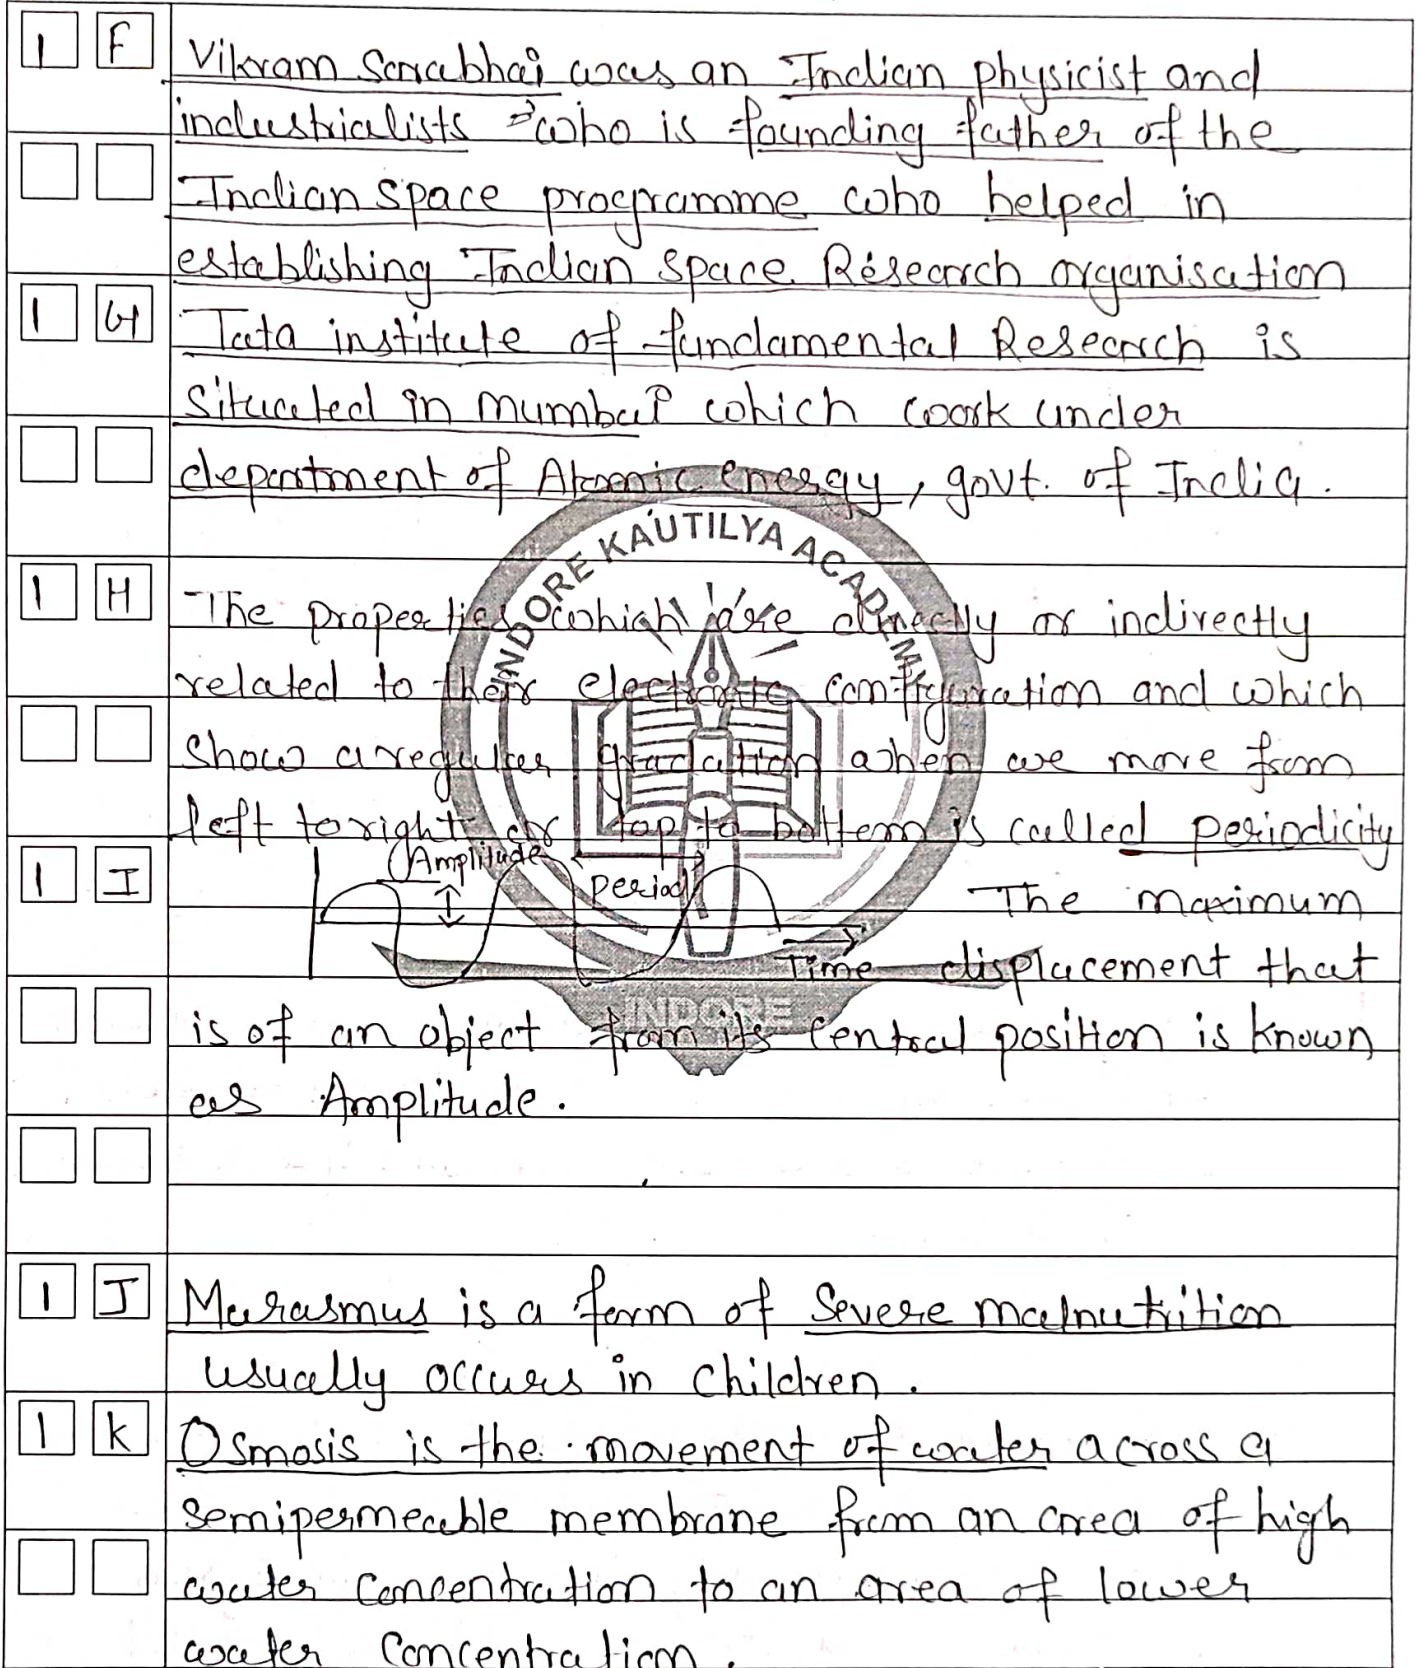 1 F Vikram Sarabhai was an Indian physicist and
industrialists who is founding father of the
Indian space programme who helped in
establishing Indian space Research organisation
1 G Tata institute of fundamental Research is
situated in mumbai which work under
department of Atomic energy, govt. of India.
INDORE KAUTILYA ACADEMY
1 H The properties which are directly or indirectly
related to their electronic configuration and which
show a regular gradation when we move from
left to right or top to bottom is called periodicity
1 I Amplitude period The maximum
Time displacement that
INDORE
is of an object from its central position is known
as Amplitude.
1 J Marasmus is a form of severe malnutrition
usually occurs in children.
1 K Osmosis is the movement of water across a
semipermeable membrane from an area of high
water concentration to an area of lower
water concentration.